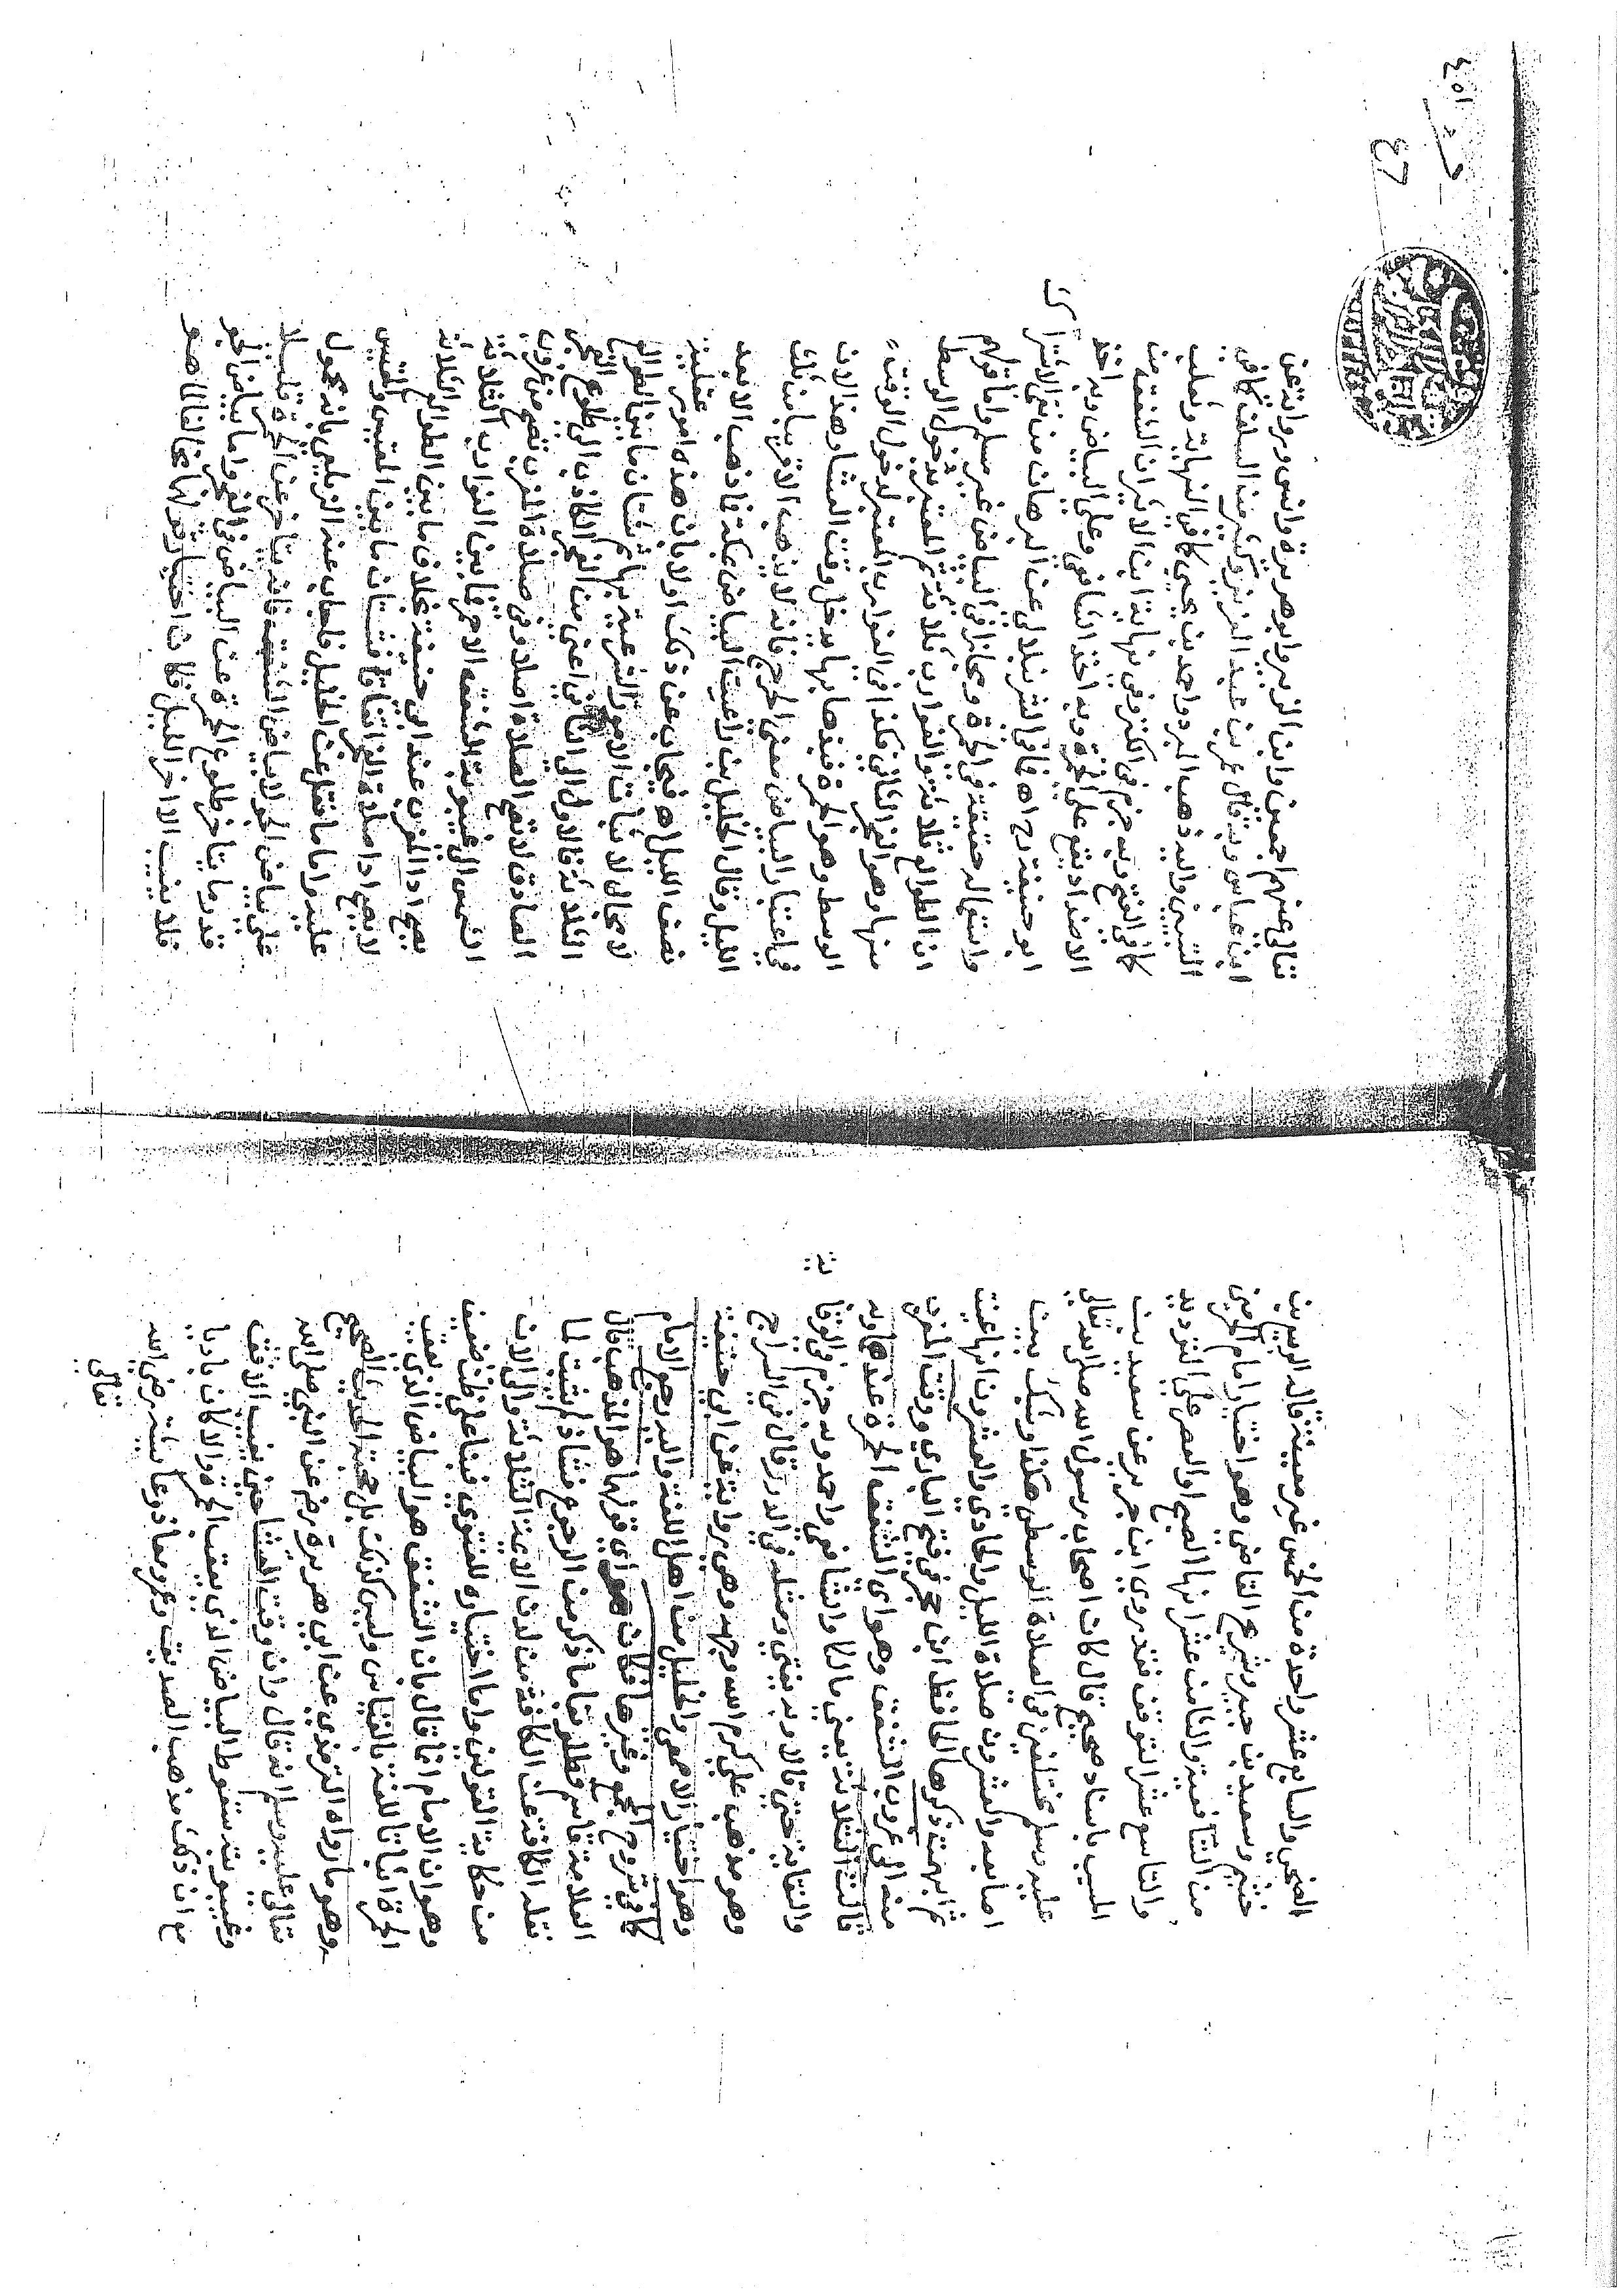 الضحى والسابع عشر واحدة من الخمس غير معينة قاله الربيع بن
خثيم وسعيد بن جبير وشريح القاضي وهو اختيار امام الحرمين
من الشافعية والثامن عشر انها الصبح او العصر على الترديد
والتاسع عشر التوقف فقد روي ابن جرير عن سعيد بن
المسيب باسناد صحيح قال كان اصحاب رسول الله صلى الله تعالى
عليه وسلم مختلفين في الصلاة الوسطى هكذا وشبك بين
اصابعه والعشرون صلاة الليل والحادي والعشرون انها عنت
ثم ابهمت ذكرها الحافظ ابن حجر في فتح الباري ووقت المغرب
منه الى غروب الشفق وهو اي الشفق الحمرة عندهما وبه
قالت الثلاثة يعني مالكا والشافعي واحمد وبه جزم في الوقا
والنقاية حتى قالا وبه يفتي ومثله في الدرر قال في السراج
وهو مذهب علي كرم الله وجهه وهي رواية عن ابي حنيفة
وهو اختيار الاصمعي والخليل من اهل اللغة واليه رجع الامام
كما في شروح المجمع وغيرها فكان هو اي قولهما هو المذهب قال
العلامة قاسم قطلوبغا ما ذكر من الرجوع فشاذ لم يثبت لما
نقله الكافة عن الكافة من لدن الائمة الثلاثة والى الان
من حكاية القولين واما اختياره للفتوي فبنا على ظن ضعيف
وهو ان الامام انما قال بان الشفق هو البياض الذي يعقب
الحمرة اثباتا للغة بالقياس وليس كذلك بل بحجة الحديث الصحيح
وهو ما رواه الترمذي عن ابي هريرة رض عن النبي صلى الله
تعالى عليه وسلم انه قال وان وقت العشا حين يغيب الافق
وغيبوبته بسقوط البياض الذي يعقب الحمرة والا كان باديا
مع ان ذلك مذهب الصديق وعمر ومعاذ وعايشة رضي الله
تعالى
٢٣
تعالى عنهم اجمعين وابن الزبير وابو هريرة وانس ورواية عن
ابن عباس وبه قال عمر بن عبد العزيز وكثير من السلف كما في
التبيين واليه ذهب المبرد واحمد بن يحيى كما في النهاية وثعلب
كما في الفتح وبه جزم في الكنز وفي نهاية ابن الاثير ان الشفق من
الاضداد يقع على الحمرة وبه اخذ الشافعي وعلى البياض وبه اخذ
ابو حنيفة رح اه فما في الشرنبلالي عن البرهان من نفي الاشتراك
واستعماله حقيقة في الحمرة ومجازا في البياض غير مسلم واما قولهم
ان الطوالع ثلاثة والغوارب ثلاثة ثم المعتبر بدخول الوسط
منها وهو الفجر الثاني فكذا في الغوارب المعتبر لدخول الوقت
الوسط وهو الحمرة فبذهابها يدخل وقت العشا وهذا لان
في اعتبار البياض معنى الحرج فانه لا يذهب الا قريبا من ثلث
الليل وقال الخليل بن راعيت البياض بمكة فما ذهب الا بعد
نصف الليل اه فيجاب عن ذلك اولا بان هذه امور عقلية
لا مجال لاثبات الامور الشرعية بها ثم شتان ما بين الطوالع
الثلاثة فالاول الى الثاني اعني من الفجر الكاذب الى طلوع الفجر
الصادق لا تصح الصلاة اصلا وفي صلاة المغرب تصح من غروب
الشمس الى غيبوبة الشفق الاحمر فما بين الغوارب الثلاثة
يصح اداء المغرب عند ابي حنيفة بخلاف ما بين الطوالع الثلاثة
لا يصح اداء صلاة الفجر اتفاقا فشتان ما بين المقيس والمقيس
عليه واما ما نقل عن الخليل فاجاب عنه الزيلعي بانه محمول
على بياض الجو لا بياض الشفق فانه يتاخر عن الحمرة قليلا
قدر ما يتاخر طلوع الحمرة عن البياض في الفجر واما بياض الجو
فلا يغيب الا اخر الليل فكان اختيار قولهما مخالفا لما هو